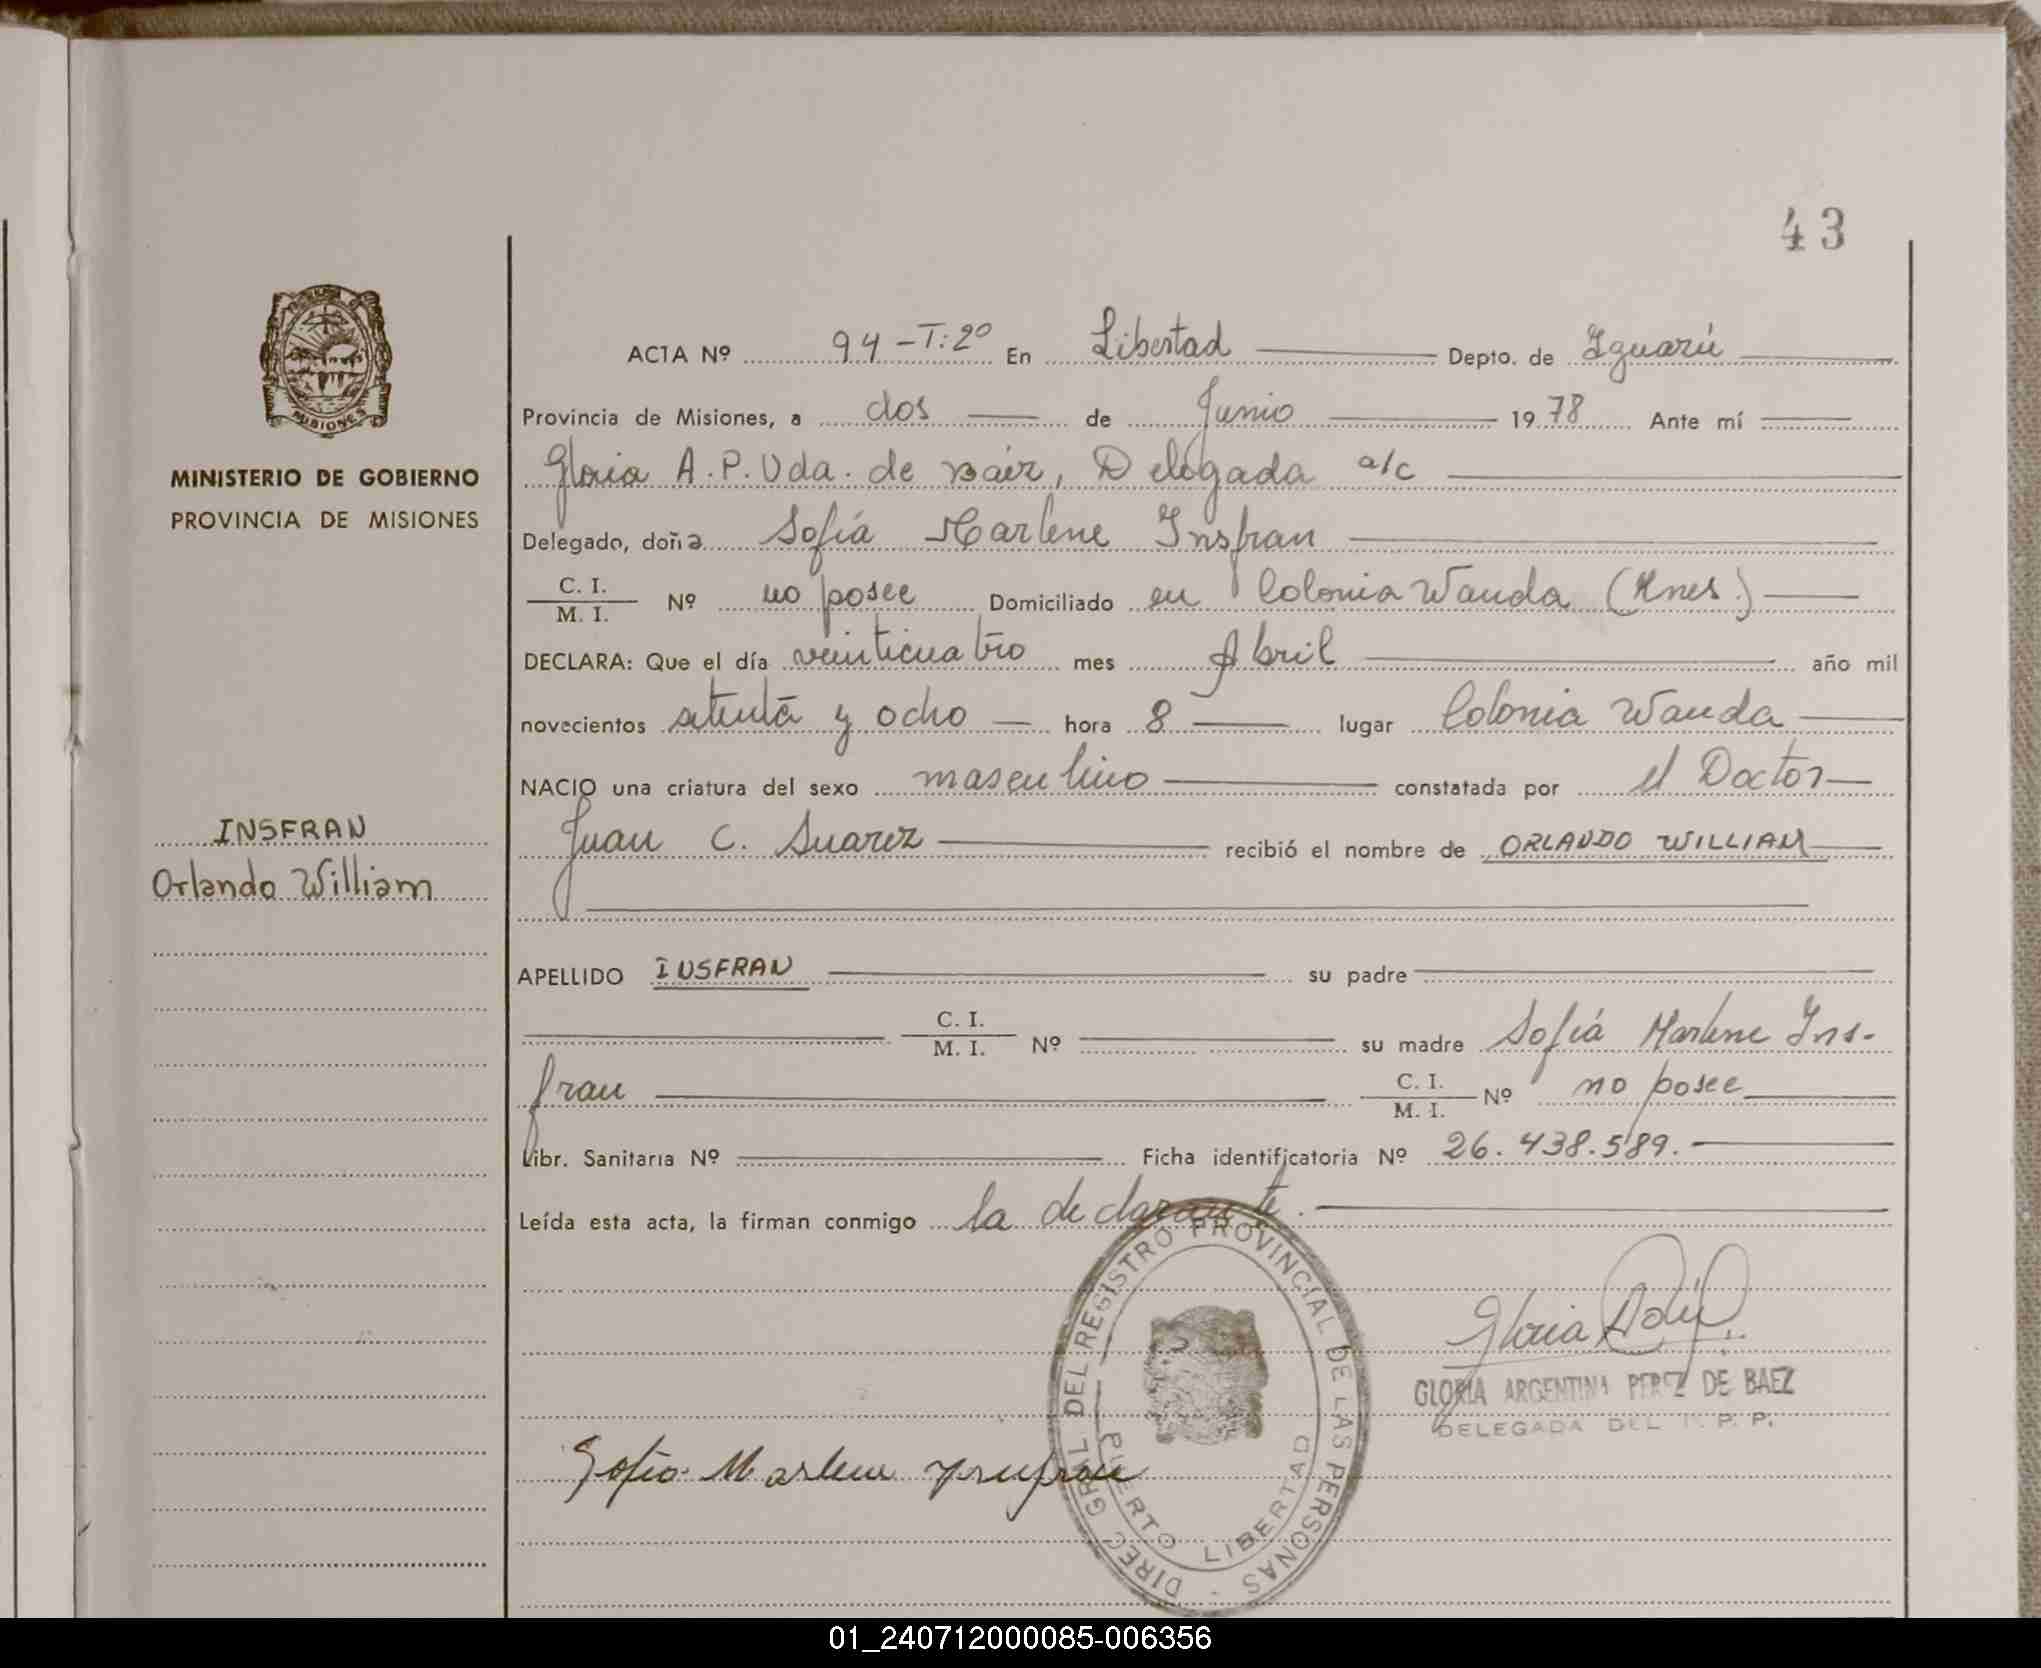 43
MISIONES
MINISTERIO DE GOBIERNO
PROVINCIA DE MISIONES
INSFRAN
Orlando William
ACTA Nº 94 - T: 2º En Libertad Depto. de Iguazú
Provincia de Misiones, a dos de Junio 1978 Ante mí
Gloria A. P. Vda. de Báez, Delegada a/c
Delegado, doña Sofía Marlene Insfran
C. I.
M. I. Nº no posee Domiciliado en Colonia Wanda (Mnes.)
DECLARA: Que el día veinticuatro mes Abril año mil
novecientos setenta y ocho hora 8 lugar Colonia Wanda
NACIO una criatura del sexo masculino constatada por el Doctor
Juan C. Suarez recibió el nombre de ORLANDO WILLIAM
APELLIDO INSFRAN su padre
C. I.
M. I. Nº su madre Sofía Marlene Ins-
fran C. I.
M. I. Nº no posee
Libr. Sanitaria Nº Ficha identificatoria Nº 26.438.589.
Leída esta acta, la firman conmigo la declarante.
DIREC. GRAL. DEL REGISTRO PROVINCIAL DE LAS PERSONAS -
PUERTO LIBERTAD
GLORIA ARGENTINA PEREZ DE BAEZ
DELEGADA DEL R. P. P.
Sofia Marlene Ynsfran
01_240712000085-006356